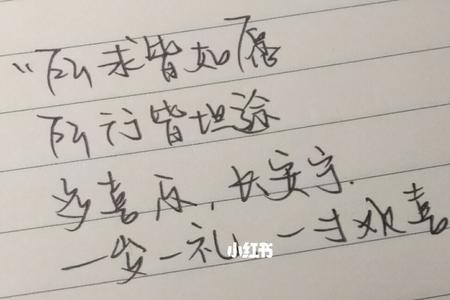 “所求皆如愿
所行皆坦途
多喜乐，长安宁.
一岁一礼 一寸欢喜
小红书